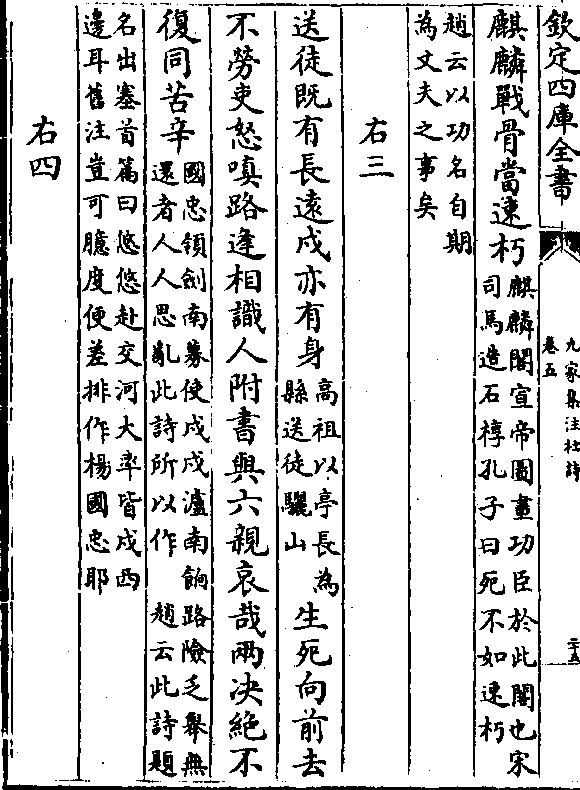 欽定四庫全書
九家集注杜詩
卷五
二十五
麒麟戰骨當速朽麒麟閣宣帝圖畫功臣於此閣也宋
司馬造石椁孔子曰死不如速朽
趙云以功名自期
為丈夫之事矣
右三
送徒既有長遠戍亦有身高祖以亭長為
縣送徒驪山生死向前去
不勞吏怒嗔路逢相識人附書與六親哀哉兩决絶不
復同苦辛國忠領劍南募使戍戍瀘南餉路險乏舉無
還者人人思亂此詩所以作　趙云此詩題
名出塞首篇曰悠悠赴交河大率皆戍西
邊耳舊注豈可臆度便差排作楊國忠耶
右四